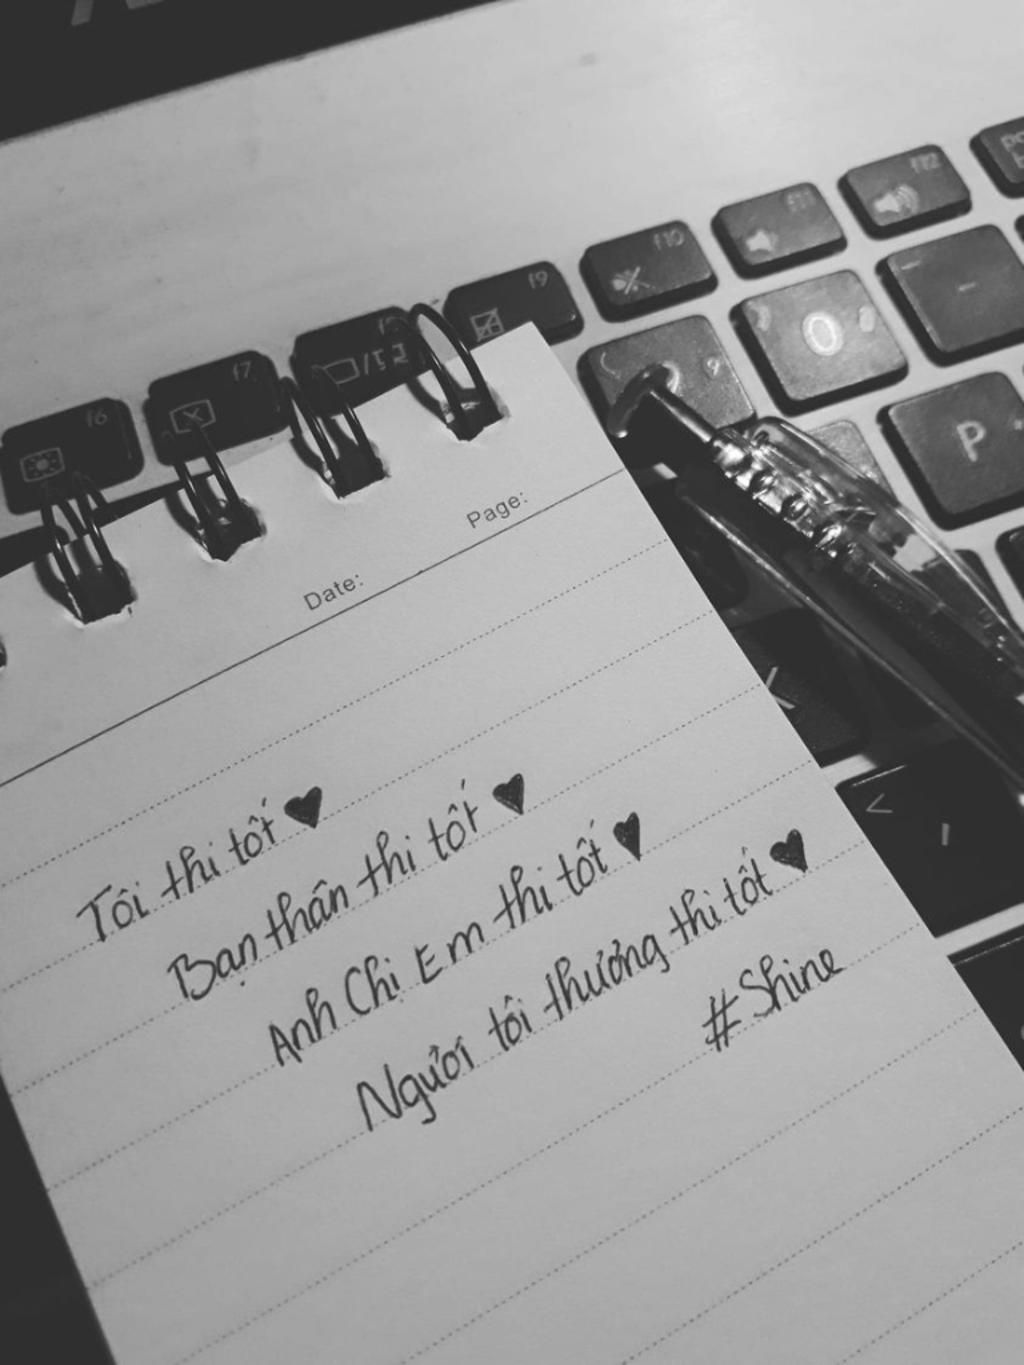 f6 f7 f8 f9 f10 f11 f12
0 -
P
K
<
Date: Page:
Tôi thi tốt ♥
Bạn thân thi tốt ♥
Anh Chị Em thi tốt ♥
Người tôi thương thi tốt ♥
#Shine